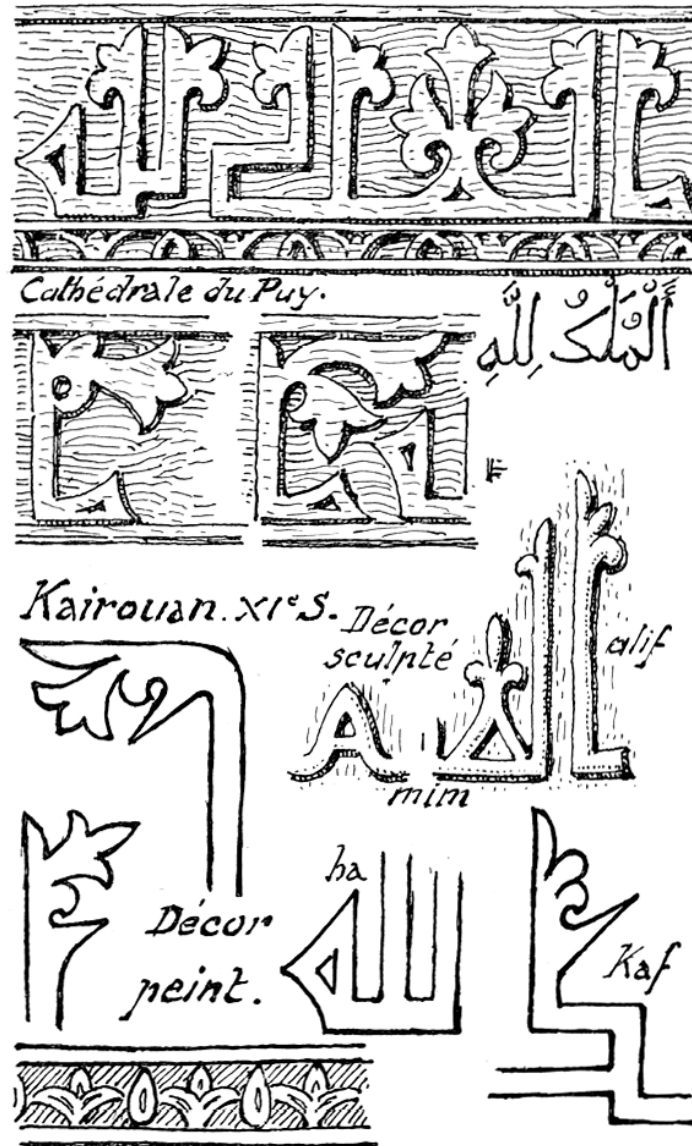 Cathédrale du Puy.
اَلْمُلْكُ لِلّٰهِ
Kairouan. XIe S.
Décor
sculpté
alif
mim
ha
Décor
peint.
Kaf